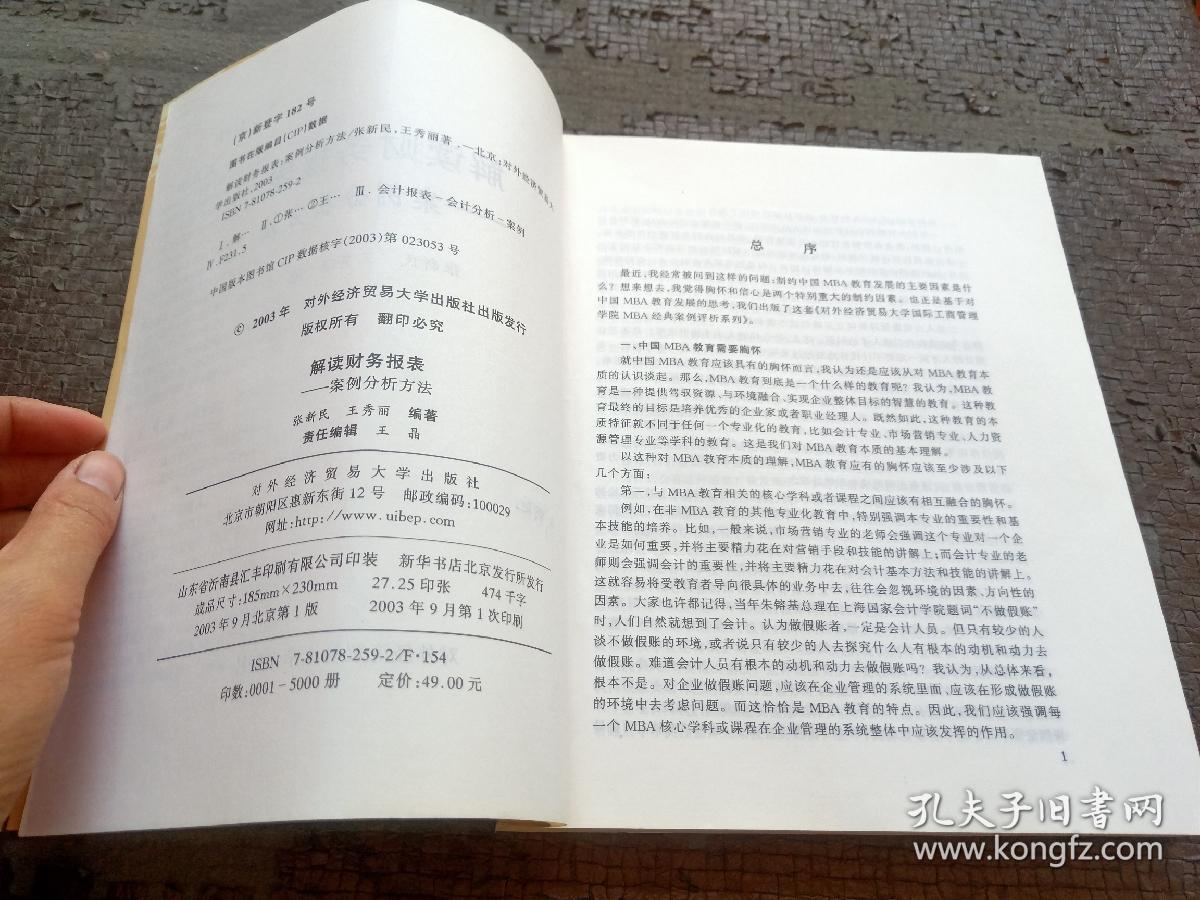 (京)新登字 182 号
图书在版编目(CIP)数据
解读财务报表:案例分析方法/张新民,王秀丽著.—北京:对外经济贸易大
学出版社,2003
ISBN 7-81078-259-2
Ⅰ.解… Ⅱ.①张…②王… Ⅲ.会计报表－会计分析－案例
Ⅳ.F231.5
中国版本图书馆 CIP 数据核字(2003)第 023053 号
© 2003年 对外经济贸易大学出版社出版发行
版权所有 翻印必究
解读财务报表
——案例分析方法
张新民 王秀丽 编著
责任编辑 王 晶
对外经济贸易大学出版社
北京市朝阳区惠新东街 12 号 邮政编码:100029
网址:http://www.uibep.com
山东省沂南县汇丰印刷有限公司印装 新华书店北京发行所发行
成品尺寸:185mm×230mm 27.25 印张 474 千字
2003 年 9 月北京第 1 版 2003 年 9 月第 1 次印刷
ISBN 7-81078-259-2/F·154
印数:0001-5000 册 定价:49.00 元
总 序
最近,我经常被问到这样的问题:制约中国 MBA 教育发展的主要因素是什
么? 想来想去,我觉得胸怀和信心是两个特别重大的制约因素。也正是基于对
中国 MBA 教育发展的思考,我们出版了这套《对外经济贸易大学国际工商管理
学院 MBA 经典案例评析系列》。
一、中国 MBA 教育需要胸怀
就中国 MBA 教育应该具有的胸怀而言,我认为还是应该从对 MBA 教育本
质的认识谈起。那么,MBA 教育到底是一个什么样的教育呢? 我认为,MBA 教
育是一种提供驾驭资源、与环境融合、实现企业整体目标的智慧的教育。这种教
育最终的目标是培养优秀的企业家或者职业经理人。既然如此,这种教育的本
质特征就不同于任何一个专业化的教育,比如会计专业、市场营销专业、人力资
源管理专业等学科的教育。这是我们对 MBA 教育本质的基本理解。
以这种对 MBA 教育本质的理解,MBA 教育应有的胸怀应该至少涉及以下
几个方面:
第一,与 MBA 教育相关的核心学科或者课程之间应该有相互融合的胸怀。
例如,在非 MBA 教育的其他专业化教育中,特别强调本专业的重要性和基
本技能的培养。比如,一般来说,市场营销专业的老师会强调这个专业对一个企
业是如何重要,并将主要精力花在对营销手段和技能的讲解上;而会计专业的老
师则会强调会计的重要性,并将主要精力花在对会计基本方法和技能的讲解上。
这就容易将受教育者导向很具体的业务中去,往往会忽视环境的因素、方向性的
因素。大家也许都记得,当年朱镕基总理在上海国家会计学院题词“不做假账”
时,人们自然就想到了会计。认为做假账者,一定是会计人员。但只有较少的人
谈不做假账的环境,或者说只有较少的人去探究什么人有根本的动机和动力去
做假账。难道会计人员有根本的动机和动力去做假账吗? 我认为,从总体来看,
根本不是。对企业做假账问题,应该在企业管理的系统里面、应该在形成做假账
的环境中去考虑问题。而这恰恰是 MBA 教育的特点。因此,我们应该强调每
一个 MBA 核心学科或课程在企业管理的系统整体中应该发挥的作用。
1
孔夫子旧书网
www.kongfz.com